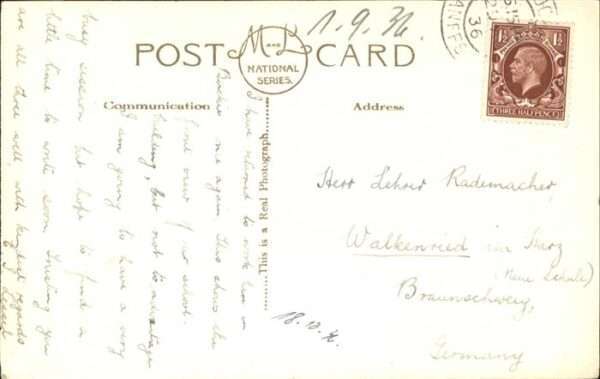 1.9.36
POST CARD
M AND L
NATIONAL
SERIES.
Communication
Address
This is a Real Photograph.
I have returned to work here in
me again. This shows the
view of our school
building, but not to advantage
I am going to have a very
busy session but hope to find a
little time to write soon. Trusting you
are all there well, with kindest regards
Herr Lehrer Rademacher,
Walkenried im Harz
(Neue Schule)
Braunschweig,
Germany
18.10.36
36
1½ 1½
THREE HALF PENCE